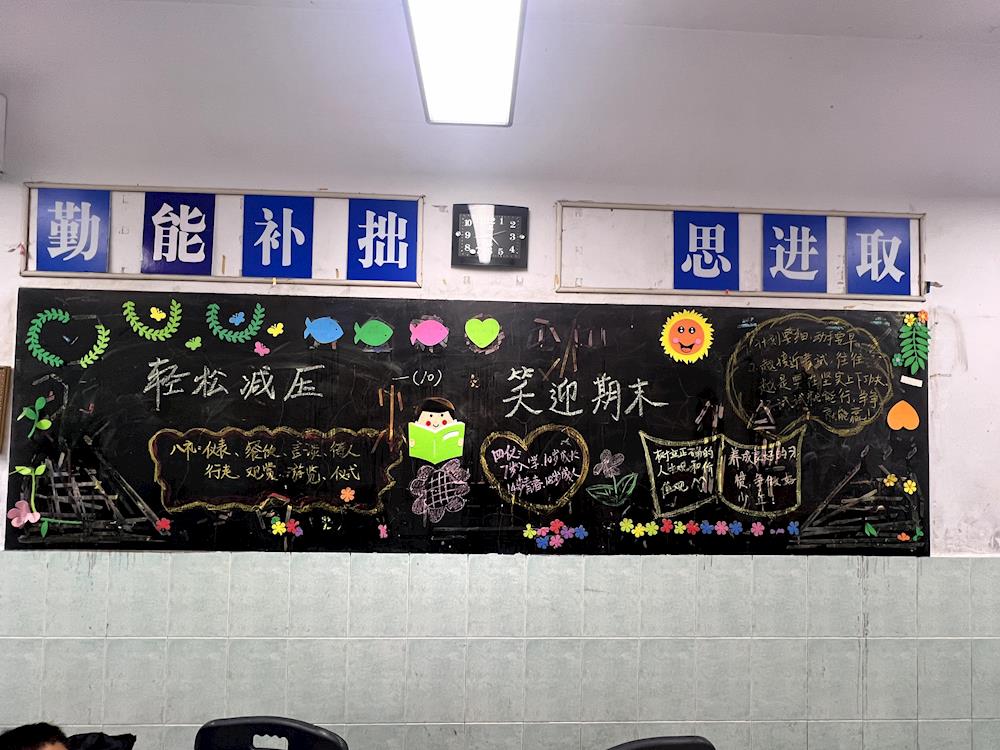 勤能补拙
思进取
轻松减压
一(10)
笑迎期末
八礼:仪表、餐饮、言谈、待人
行走、观赏、游览、仪式
四仪:
7岁入学,10岁成长
14岁青春,18岁成人
树立正确的
人生观和价
值观
养成良好的习
惯,争做好
少年
计划要细,动手要早
越接近考试,往往